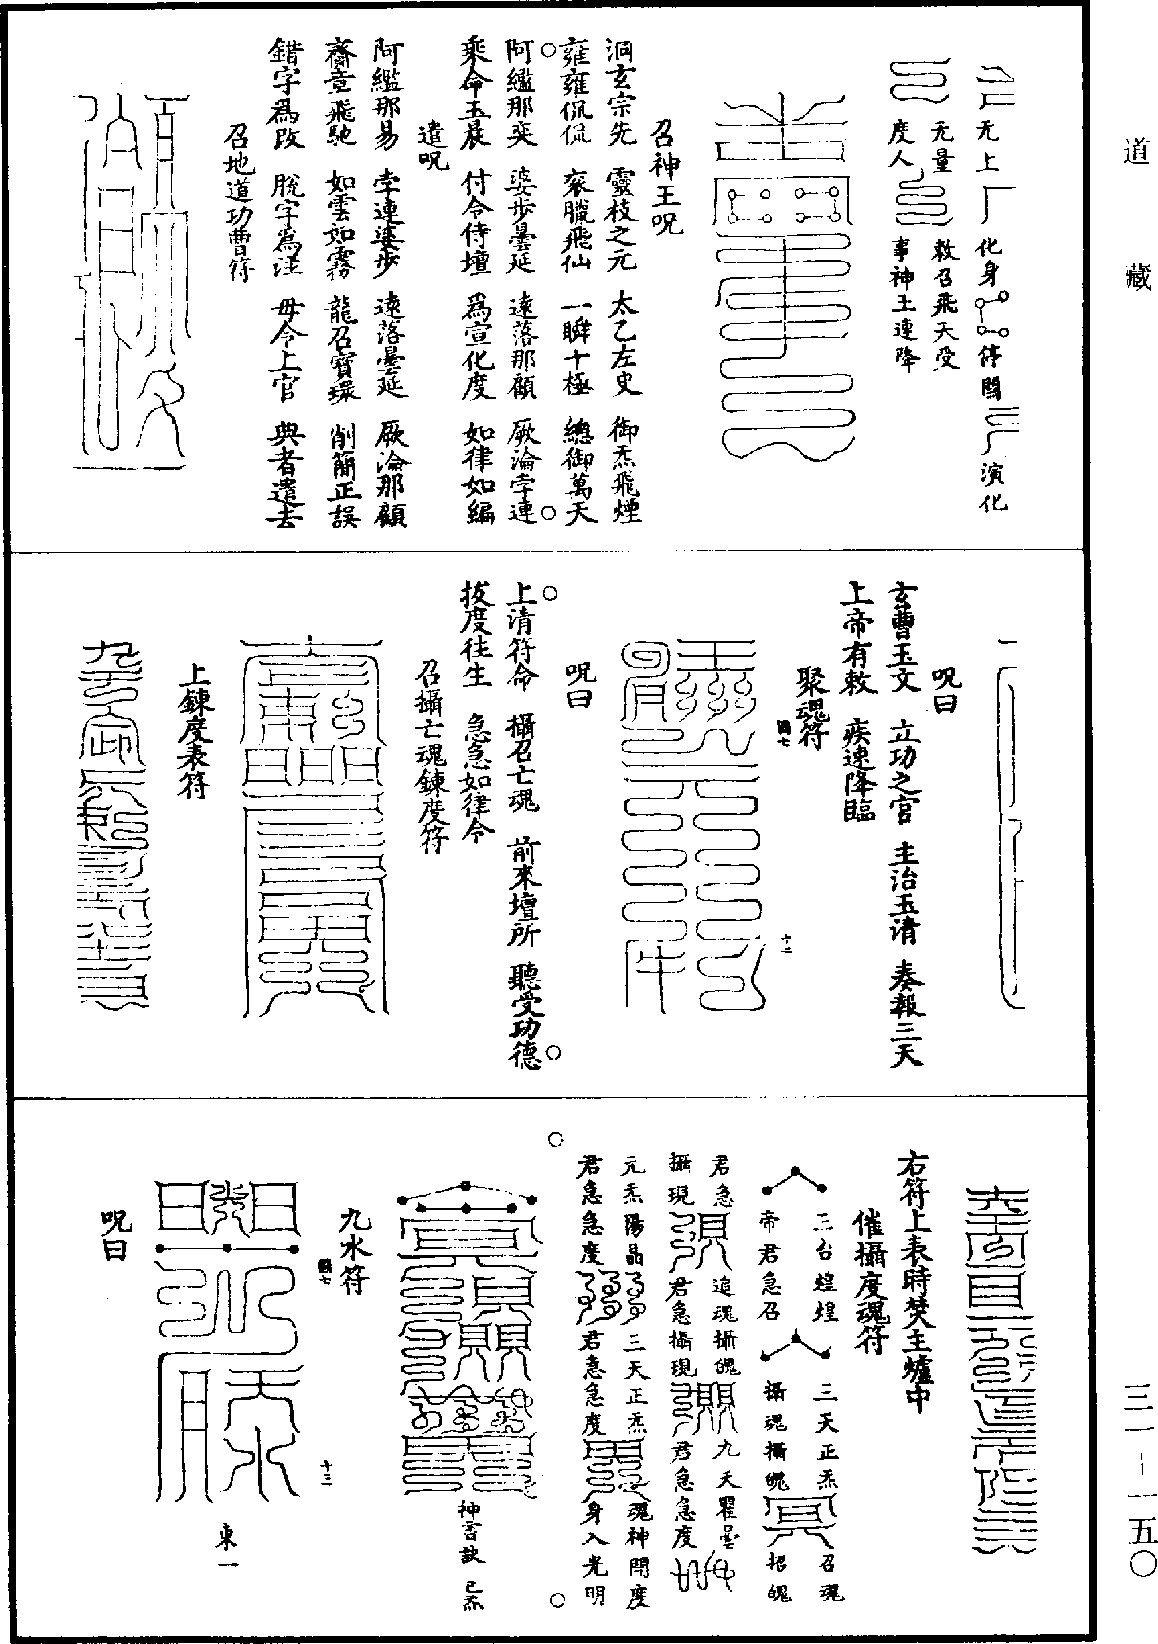 道藏
三一-一五〇
无上 化身 停關 演化
无量 敕召飛天受
度人 事神王速降
召神王呪
洞玄宗先 靈枝之元 太乙左史 御炁飛煙
雍雍侃侃 飛仙 一瞬十極 總御萬天
阿繿那奕 婆步曇延 遠落那顧 厥淪孛連
乘命玉晨 付令侍壇 爲宣化度 如律如編
遣呪
阿繿那易 孛連婆步 遠落曇延 厥淪那顧
齋章飛馳 如雲如霧 龍召寶環 削簡正誤
錯字爲改 脫字爲注 毋令上官 典者遣去
召地道功曹符
呪曰
玄曹玉文 立功之官 主治玉清 奏報三天
上帝有敕 疾速降臨
聚魂符
國七
十二
呪曰
上清符命 攝召亡魂 前來壇所 聽受功德
拔度往生 急急如律令
召攝亡魂鍊度符
上鍊度表符
右符上表時焚主爐中
催攝度魂符
三台煌煌 三天正炁 召魂
帝君急召 攝魂攝魄 招魄
君急 追魂攝魄 九天瞿曇
攝現 君急攝現 君急急度
元炁陽晶 三天正炁 魂神開度
君急急度 君急急度 身入光明
神霄訣 已炁
九水符
國七
十三
東一
呪曰